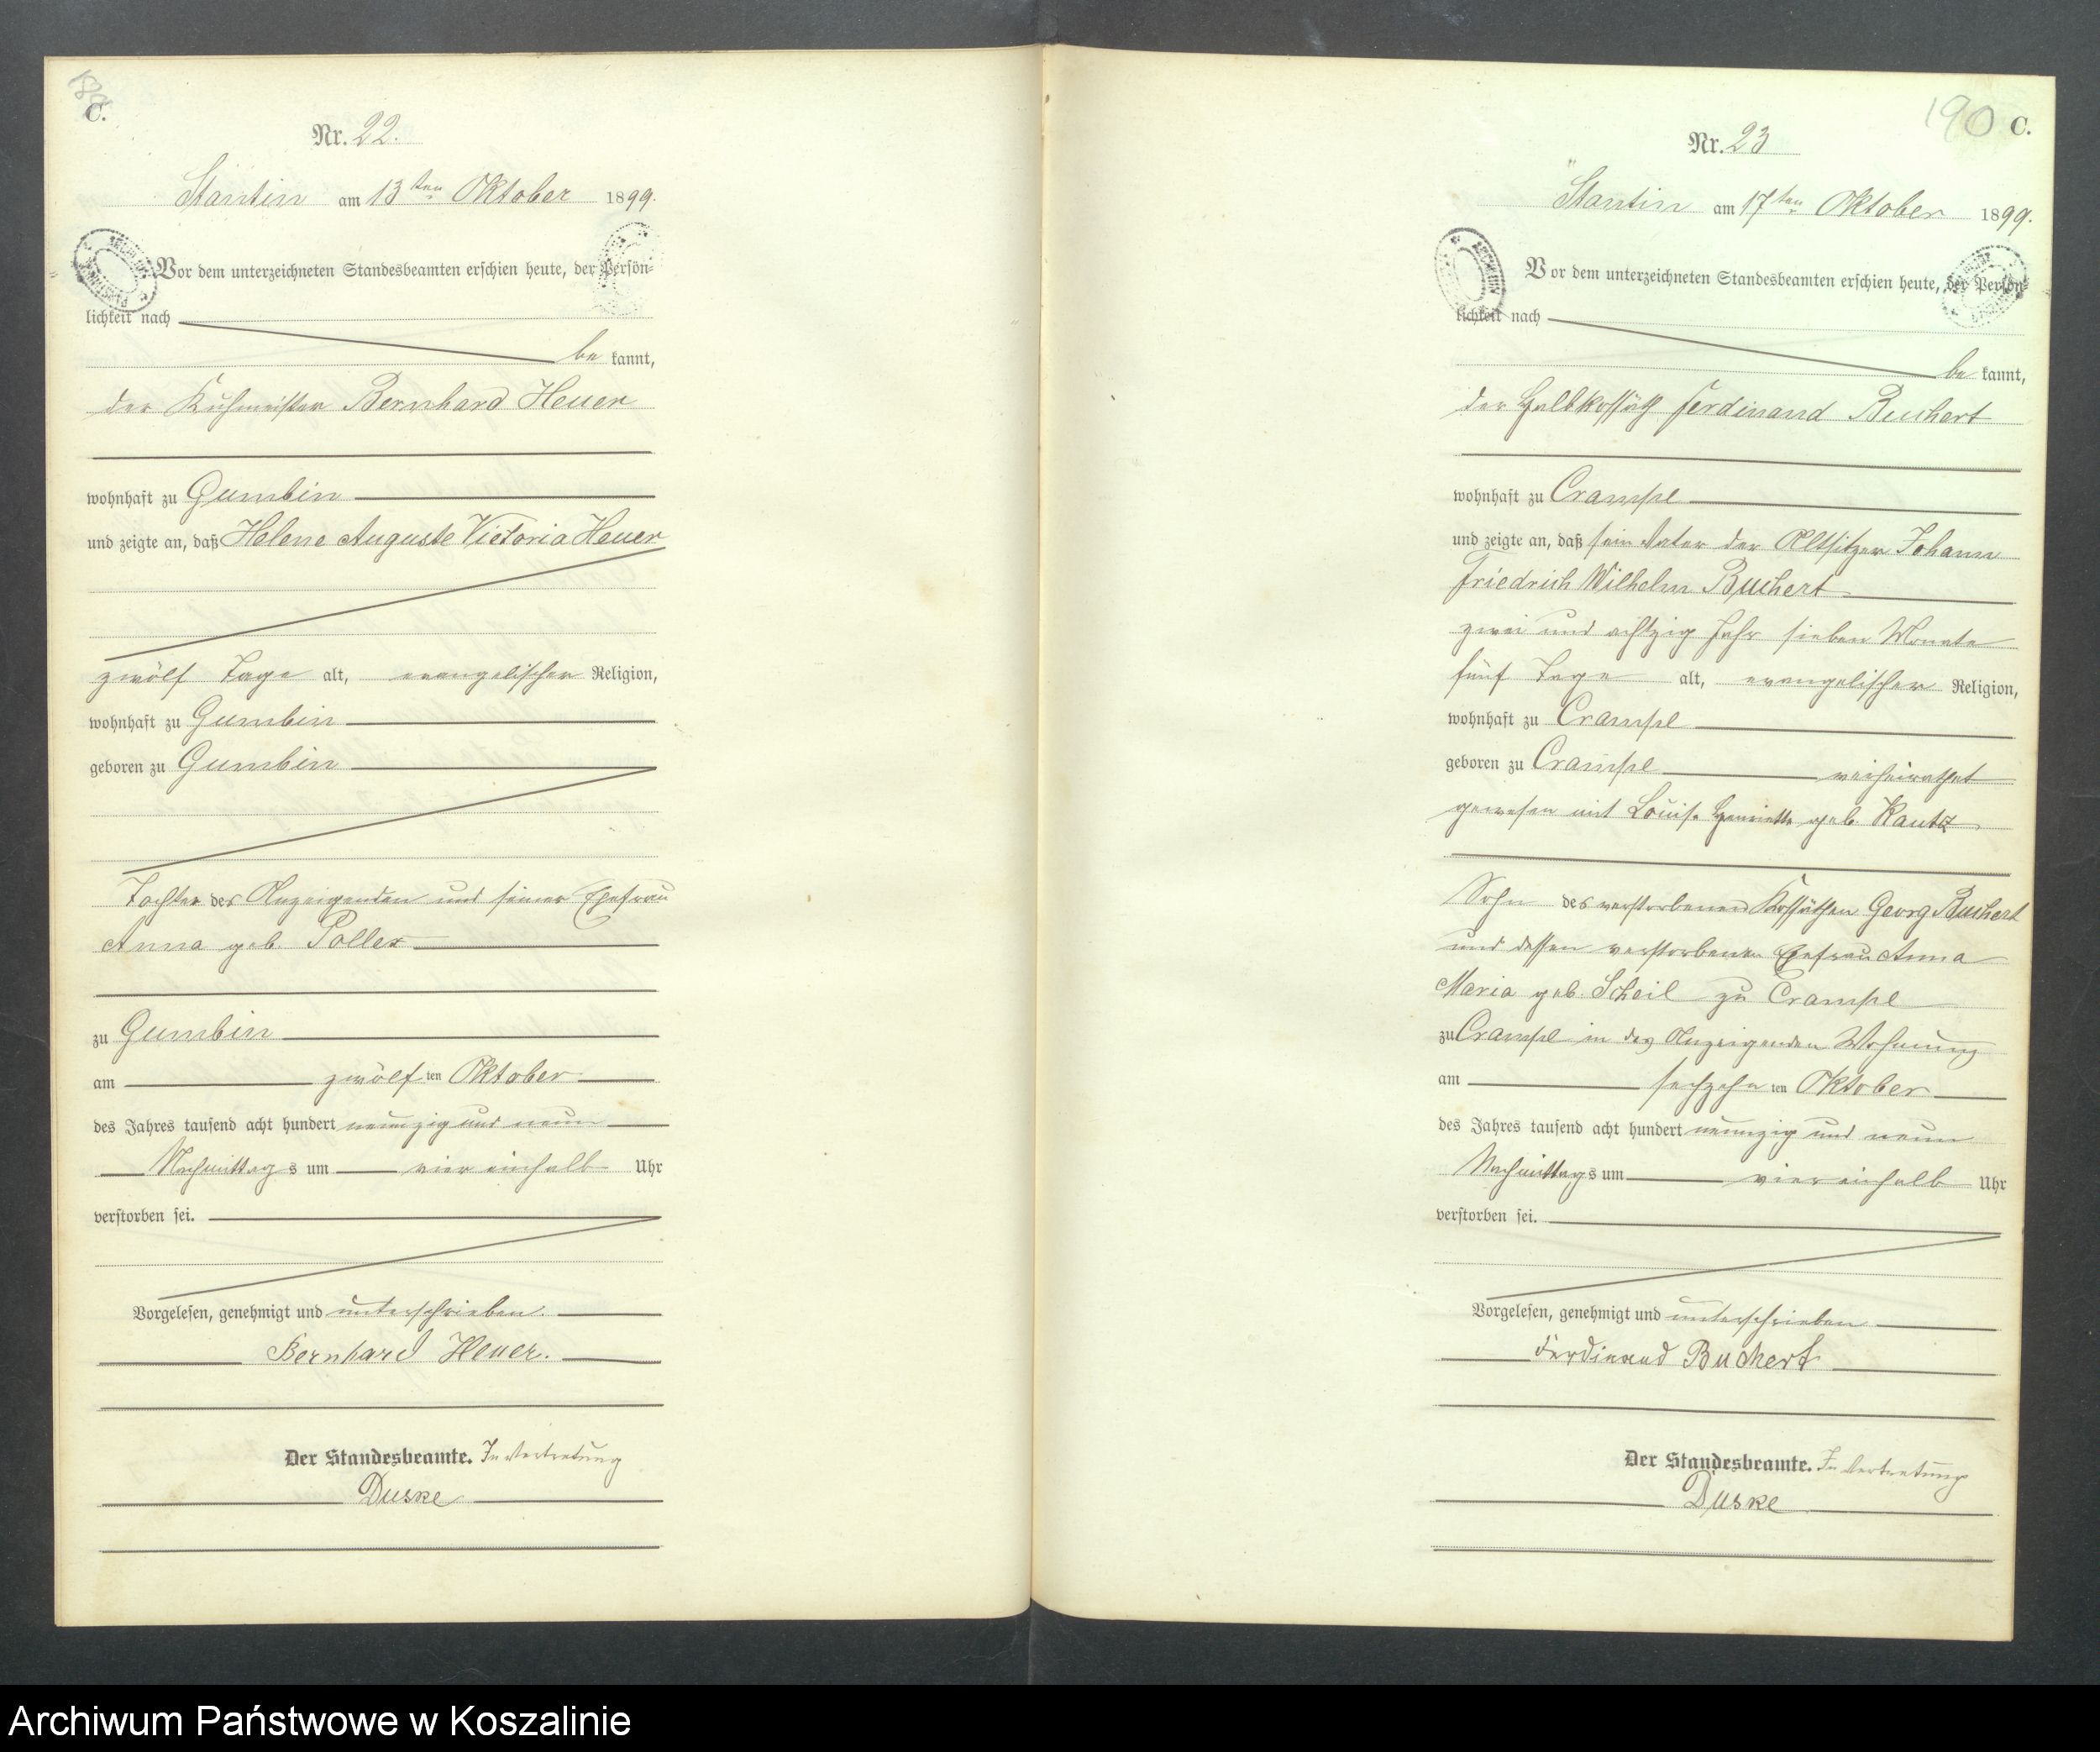 C.
Nr. 22.
Stantin am 13ten Oktober 1899.
Vor dem unterzeichneten Standesbeamten erschien heute, der Persön-
lichkeit nach
be kannt,
der Kuhmeister Bernhard Heuer
wohnhaft zu Gumbin
und zeigte an, daß Helene Auguste Victoria Heuer
zwölf Tage alt, evangelischer Religion,
wohnhaft zu Gumbin
geboren zu Gumbin
Tochter des Anzeigenden und seiner Ehefrau
Anna geb. Pollex
zu Gumbin
am zwölf ten Oktober
des Jahres tausend acht hundert neunzig und neun
Nachmittags um vier einhalb Uhr
verstorben sei.
Vorgelesen, genehmigt und unterschrieben.
Bernhard Heuer.
Der Standesbeamte. In Vertretung
Duske
190 C.
Nr. 23
Stantin am 17ten Oktober 1899.
Vor dem unterzeichneten Standesbeamten erschien heute, der Persön-
lichkeit nach
be kannt,
der Halbkossäth Ferdinand Buchert
wohnhaft zu Crampe
und zeigte an, daß sein Vater der Altsitzer Johann
Friedrich Wilhelm Buchert
zwei und achtzig Jahr sieben Monate
fünf Tage alt, evangelischer Religion,
wohnhaft zu Crampe
geboren zu Crampe verheirathet
gewesen mit Louise Henriette geb. Kautz
Sohn des verstorbenen Kossäthen Georg Buchert
und dessen verstorbenen Ehefrau Anna
Maria geb. Scheil zu Crampe
zu Crampe in des Anzeigenden Wohnung
am sechzehn ten Oktober
des Jahres tausend acht hundert neunzig und neun
Nachmittags um vier einhalb Uhr
verstorben sei.
Vorgelesen, genehmigt und unterschrieben
Ferdinand Buchert
Der Standesbeamte. In Vertretung
Duske
Archiwum Państwowe w Koszalinie